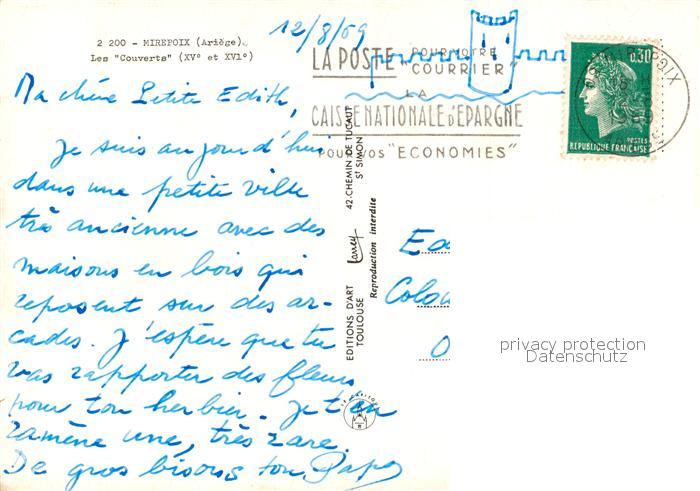 12/8/69
2 200 - MIREPOIX (Ariège).
Les "Couverts" (XV° et XVI°)
LA POSTE "POUR VOTRE COURRIER"
LA
CAISSE NATIONALE D'EPARGNE
POUR VOS "ECONOMIES"
0,30
POSTES
REPUBLIQUE FRANÇAISE
MIREPOIX
Ma chère Petite Edith,
Je suis aujourd'hui
dans une petite ville
très ancienne avec des
maisons en bois qui
reposent sur des ar-
cades. J'espère que tu
vas rapporter des fleurs
pour ton herbier. Je t'en
ramène une, très rare.
De gros bisous ton Papa
EDITIONS D'ART Larrey 42, CHEMIN DE TUCAUT
TOULOUSE ST SIMON
Reproduction interdite
Colo
privacy protection
Datenschutz